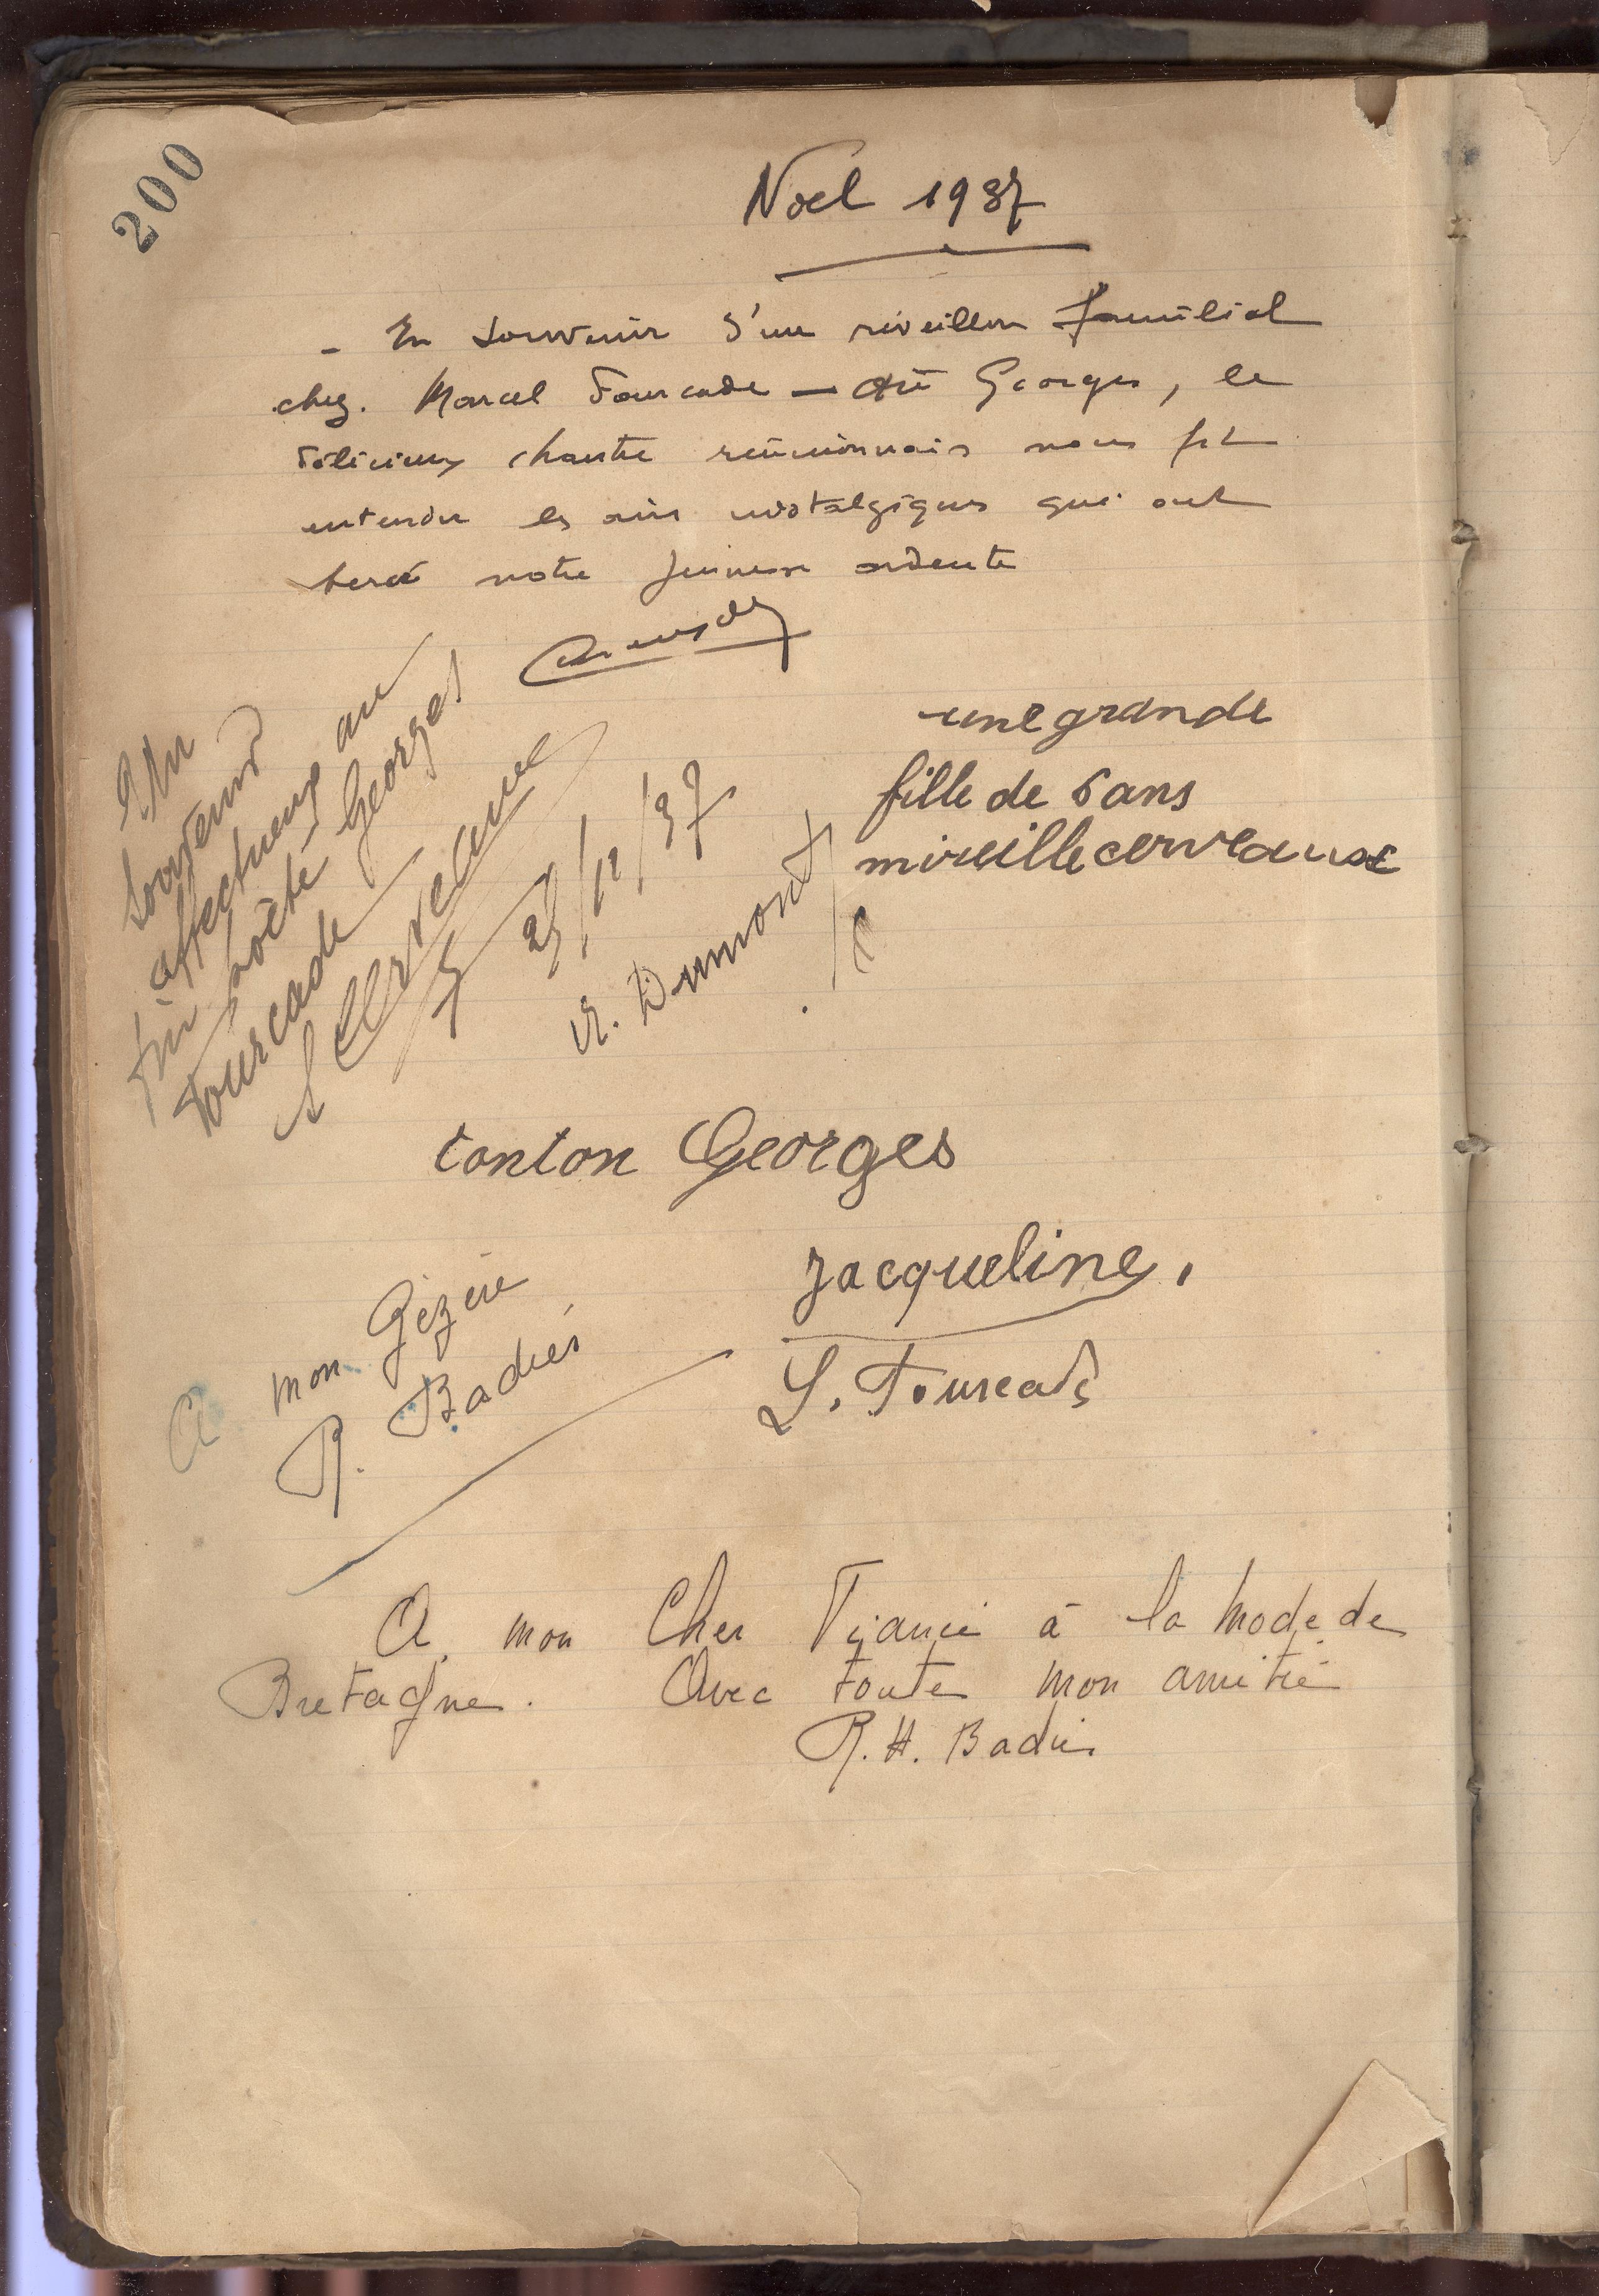 200
Noel 1937
- En souvenir d'un réveillon familial
chez Marcel Fourcade — où Georges, le
délicieux chantre réunionnais nous fit
entendre les airs nostalgiques qui ont
bercé notre jeunesse ardente
Un
souvenir
affectueux au
fin poète Georges
Fourcade
Cerveaux
25/12/37
Dumont
une grande
fille de 6 ans
mireille cerveaux
tonton Georges
Jacqueline.
L. Fourcade
A mon Gézère
R. Badiés
A mon Cher Fiancé à la mode de
Bretagne. Avec toute mon amitié
R. H. Badiés